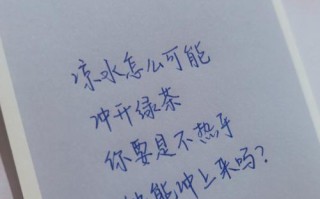 凉水怎么可能
冲开绿茶
你要是不热乎
能冲上来吗?